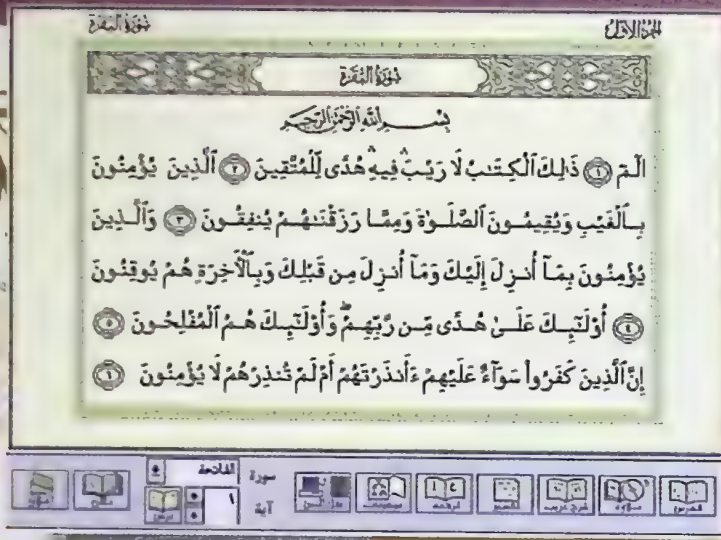 الجزء الأول
سورة البقرة
سورة البقرة
بِسْمِ اللَّهِ الرَّحْمَٰنِ الرَّحِيمِ
الٓمٓ ۝١ ذَٰلِكَ ٱلْكِتَٰبُ لَا رَيْبَ ۛ فِيهِ ۛ هُدًى لِّلْمُتَّقِينَ ۝٢ ٱلَّذِينَ يُؤْمِنُونَ
بِٱلْغَيْبِ وَيُقِيمُونَ ٱلصَّلَوٰةَ وَمِمَّا رَزَقْنَٰهُمْ يُنفِقُونَ ۝٣ وَٱلَّذِينَ
يُؤْمِنُونَ بِمَآ أُنزِلَ إِلَيْكَ وَمَآ أُنزِلَ مِن قَبْلِكَ وَبِٱلْأٓخِرَةِ هُمْ يُوقِنُونَ
۝٤ أُوْلَٰٓئِكَ عَلَىٰ هُدًى مِّن رَّبِّهِمْ ۖ وَأُوْلَٰٓئِكَ هُمُ ٱلْمُفْلِحُونَ ۝٥
إِنَّ ٱلَّذِينَ كَفَرُواْ سَوَآءٌ عَلَيْهِمْ ءَأَنذَرْتَهُمْ أَمْ لَمْ تُنذِرْهُمْ لَا يُؤْمِنُونَ ۝٦
سورة الفاتحة
آية ١
الفهرس تلاوة شرح غريب تفسير ترجمة